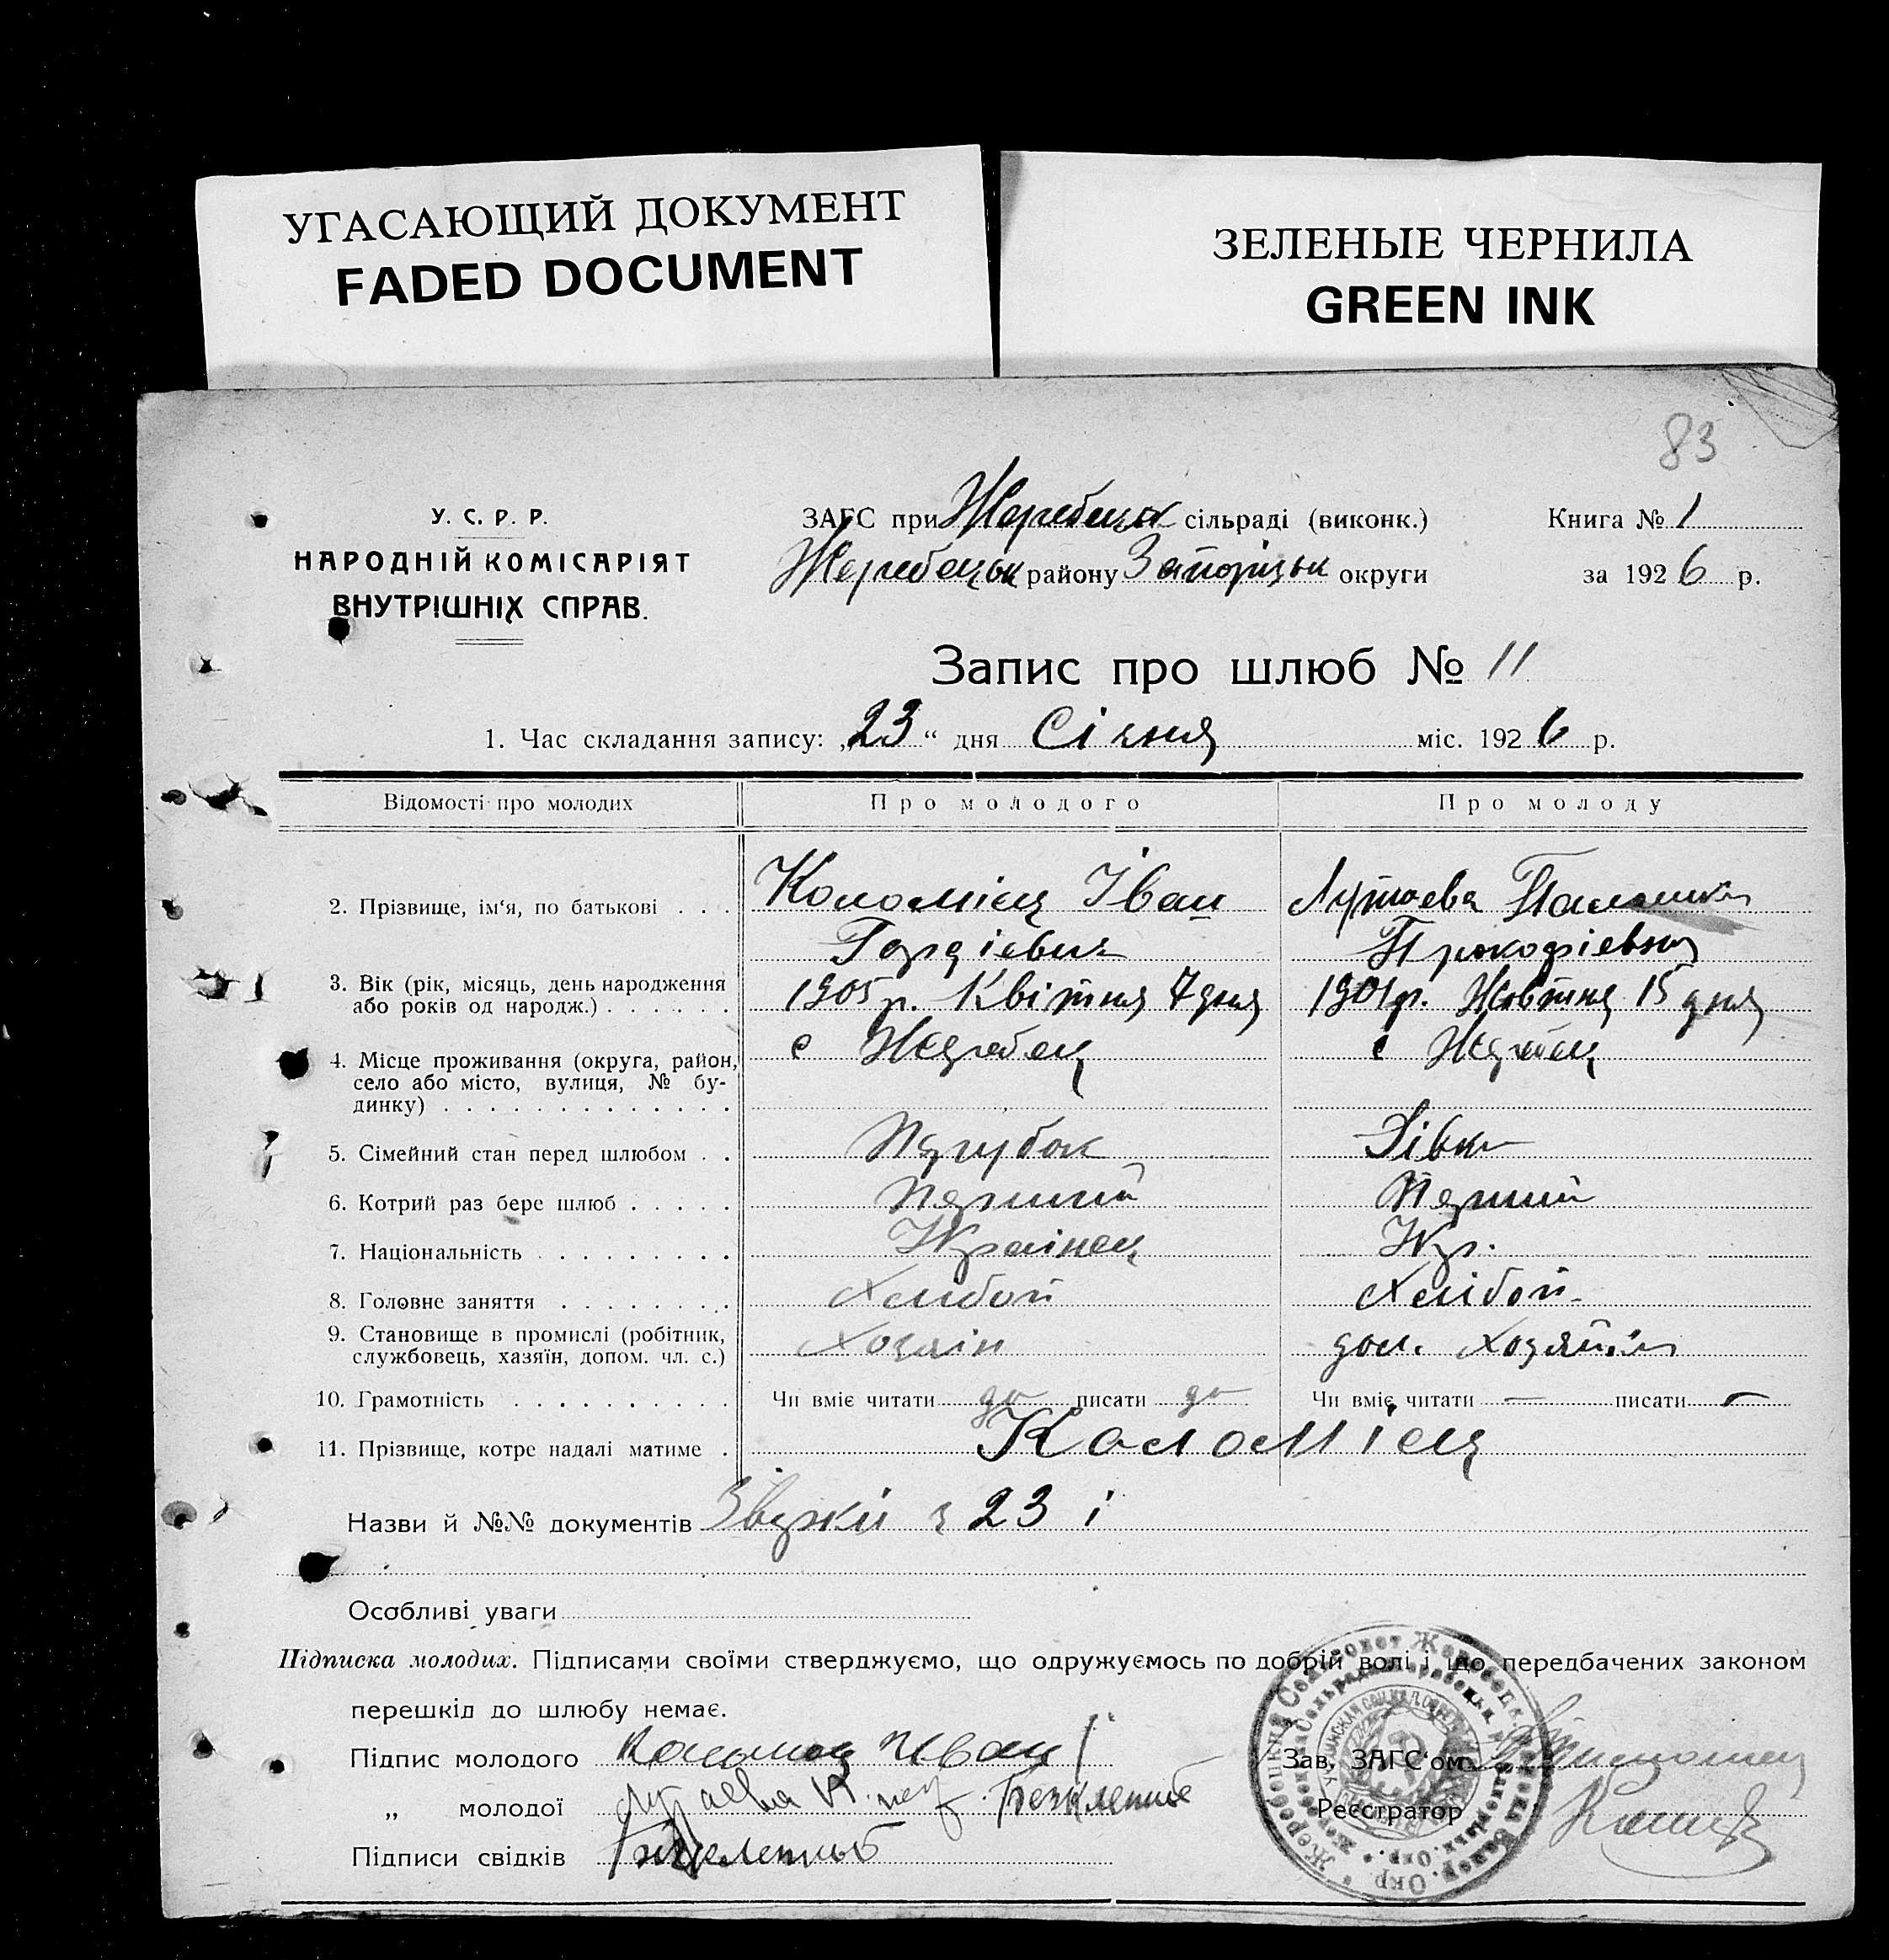 УГАСАЮЩИЙ ДОКУМЕНТ
FADED DOCUMENT
ЗЕЛЕНЫЕ ЧЕРНИЛА
GREEN INK
83
У. С. Р. Р.
НАРОДНІЙ КОМІСАРІЯТ
ВНУТРІШНІХ СПРАВ.
ЗАГС при Жеребецьк сільраді (виконк.)
Жеребецьк району Запоріцьк округи
Книга № 1
за 1926 р.
Запис про шлюб № 11
1. Час складання запису: „23“ дня Січня міс. 1926 р.
Відомості про молодих Про молодого Про молоду
2. Прізвище, ім'я, по батькові . . . Коломієц Іван Лутаева
Гордієвич Прокофієвна
3. Вік (рік, місяць, день народження або років од народж.) . . . . . . 1905 р. Квітня 7 дня 1901 р. Жовтня 15 дня
4. Місце проживання (округа, район, село або місто, вулиця, № будинку) . . . . . . . . . . . . . с Жеребец с Жеребец
5. Сімейний стан перед шлюбом . . Парубок Дівка
6. Котрий раз бере шлюб . . . . . Перший Перший
7. Національність . . . . . . . . . Українец Укр.
8. Головне заняття . . . . . . . . Хлібоп Хлібоп.
9. Становище в промислі (робітник, службовець, хазяїн, допом. чл. с.) Хозяін дом. хозяйка
10. Грамотність . . . . . . . . . . Чи вміє читати да писати да Чи вміє читати — писати —
11. Прізвище, котре надалі матиме . Коломієц
Назви й №№ документів 23 і
Особливі уваги
Підписка молодих. Підписами своїми стверджуємо, що одружуємось по добрій волі і що передбачених законом
перешкід до шлюбу немає.
Підпис молодого Коломиец Иван
„ молодої Лутаева
Підписи свідків
Зав. ЗАГС'ом
Реєстратор